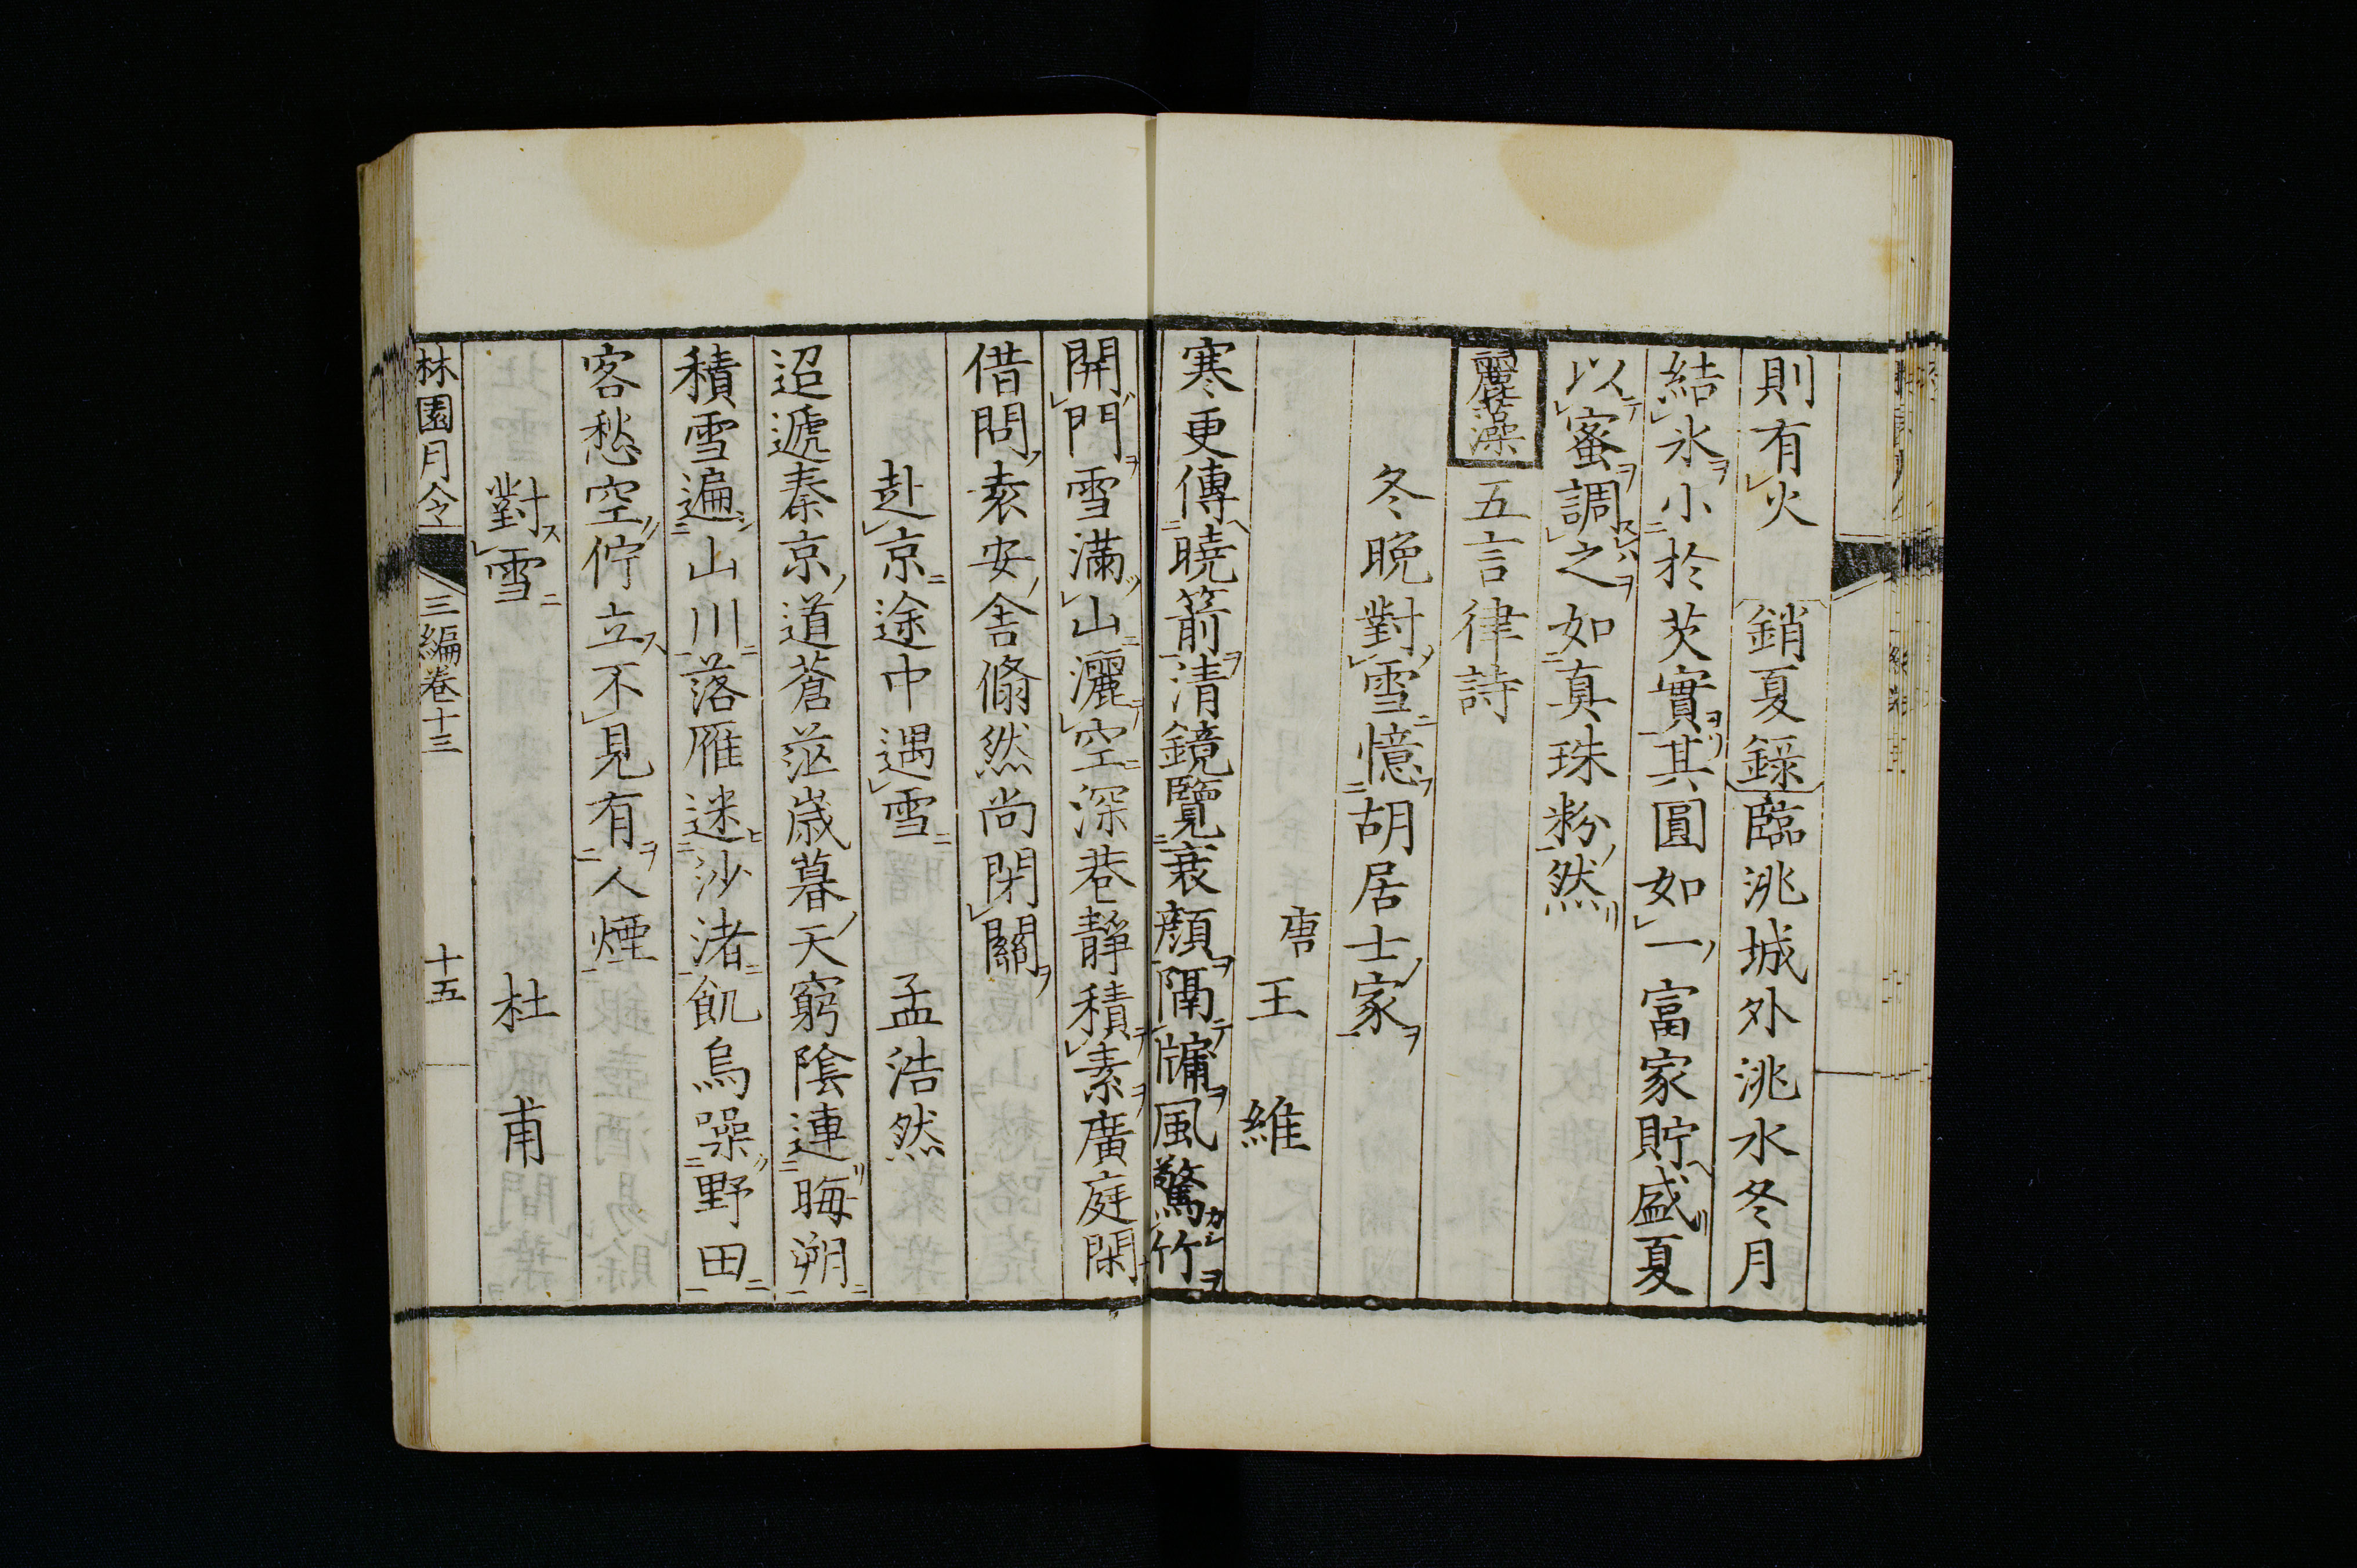 則有火　銷夏錄臨洮城外洮水冬月
結氷小於芡實其圓如一富家貯盛夏
以蜜調之如真珠粉然
麗藻　五言律詩
冬晩對雪憶胡居士家
唐　王維
寒更傳曉箭清鏡覽衰顔隔牖風驚竹
開門雪滿山灑空深巷靜積素廣庭閑
借問袁安舍翛然尚閉關
赴京途中遇雪　孟浩然
迢遞秦京道蒼茫歳暮天窮陰連晦朔
積雪遍山川落雁迷沙渚飢烏噪野田
客愁空佇立不見有人煙
對雪　杜甫
林園月令　三編卷十三　十五